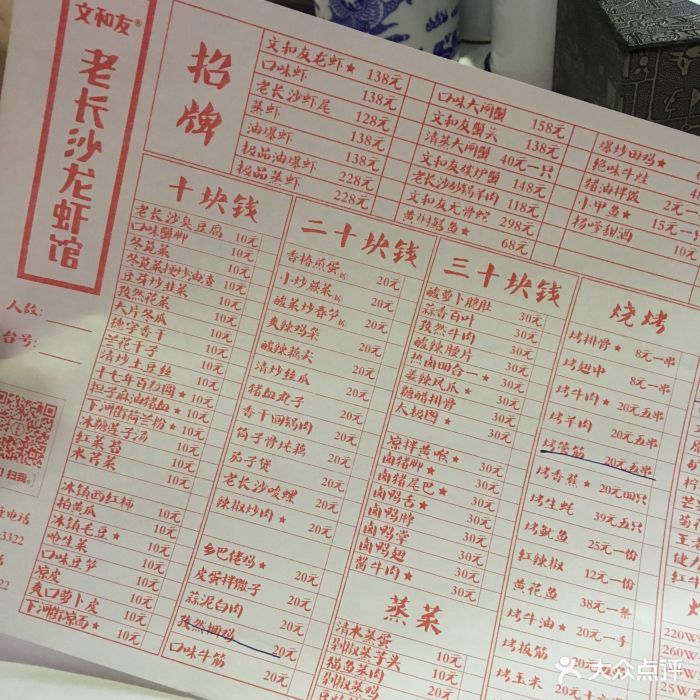 文和友
老长沙龙虾馆
人数：
台号：
扫我
电话
3322
招牌
文和友老虾★ 138元
口味虾 138元
老长沙虾尾 128元
蒸虾 138元
油爆虾 138元
极品油爆虾 228元
极品蒸虾 228元
口味大闸蟹 158元
文和友蟹头 138元
清蒸大闸蟹 40元一只
文和友碳炉蟹 148元
老长沙炒羊肉 118元
文和友无骨蛇 298元
黄州鸡鱼★ 68元
爆炒田鸡★
绝味牛蛙
猪油拌饭 2元一
小甲鱼★ 15元一只
杨嗲甜酒 10元
十块钱
老长沙臭豆腐 10元
口味蟹脚 10元
冬苋菜 10元
冬苋菜梗炒油渣 10元
豆芽炒韭菜 10元
孜然花菜 10元
大片冬瓜 10元
德字香干 10元
兰花干子 10元
清炒土豆丝 10元
十七年百粒圆★ 10元
担子麻油猪血★ 10元
下洲街荷兰粉★ 10元
冰糖莲子汤 10元
红菜苔 10元
水芹菜 10元
冰镇西红柿 10元
拍黄瓜 10元
冰镇毛豆★ 10元
呛生菜 10元
口味豆笋 10元
凉皮 10元
爽口萝卜皮 10元
下洲街凉面★ 10元
二十块钱
香椿煎蛋 20元
小炒蕨菜 20元
酸菜炒春笋 20元
爽辣鸡杂 20元
酸辣藕尖 20元
清炒丝瓜 20元
猪血丸子 20元
香干回锅肉 20元
筒子骨炖藕 20元
茄子煲 20元
老长沙唆螺 20元
辣椒炒肉★ 20元
乡巴佬鸡★ 20元
皮蛋拌馓子 20元
蒜泥白肉 20元
孜然掴鸡 20元
口味牛筋 20元
三十块钱
酸萝卜腰肚 30元
蒜香百叶 30元
孜然牛肉 30元
酸辣脸片 30元
热卤四合一★ 30元
姜辣凤爪★ 30元
糖醋排骨 30元
太极图★ 30元
凉拌黄喉 30元
卤猪脚★ 30元
卤猪尾巴★ 30元
卤鸭舌★ 30元
卤鸭脖 30元
卤鸭掌 30元
卤鸭翅 30元
酱牛肉★ 30元
蒸菜
清水蒸蛋 10元
剁椒蒸芋头 10元
猫鱼蒸肉 20元
剁椒蒸鸡 20元
烧烤
烤排骨★ 8元一串
烤翅中 8元一串
烤牛肉★ 20元五串
烤羊肉 20元五串
烤掌筋 20元五串
烤香蕉★ 20元四只
烤生蚝 39元五只
烤鱿鱼 25元一份
红辣椒 12元一份
黄花鱼 38元一条
烤牛油★ 20元一手
烤板筋 20元一手
烤玉米
220W
260W
大众点评